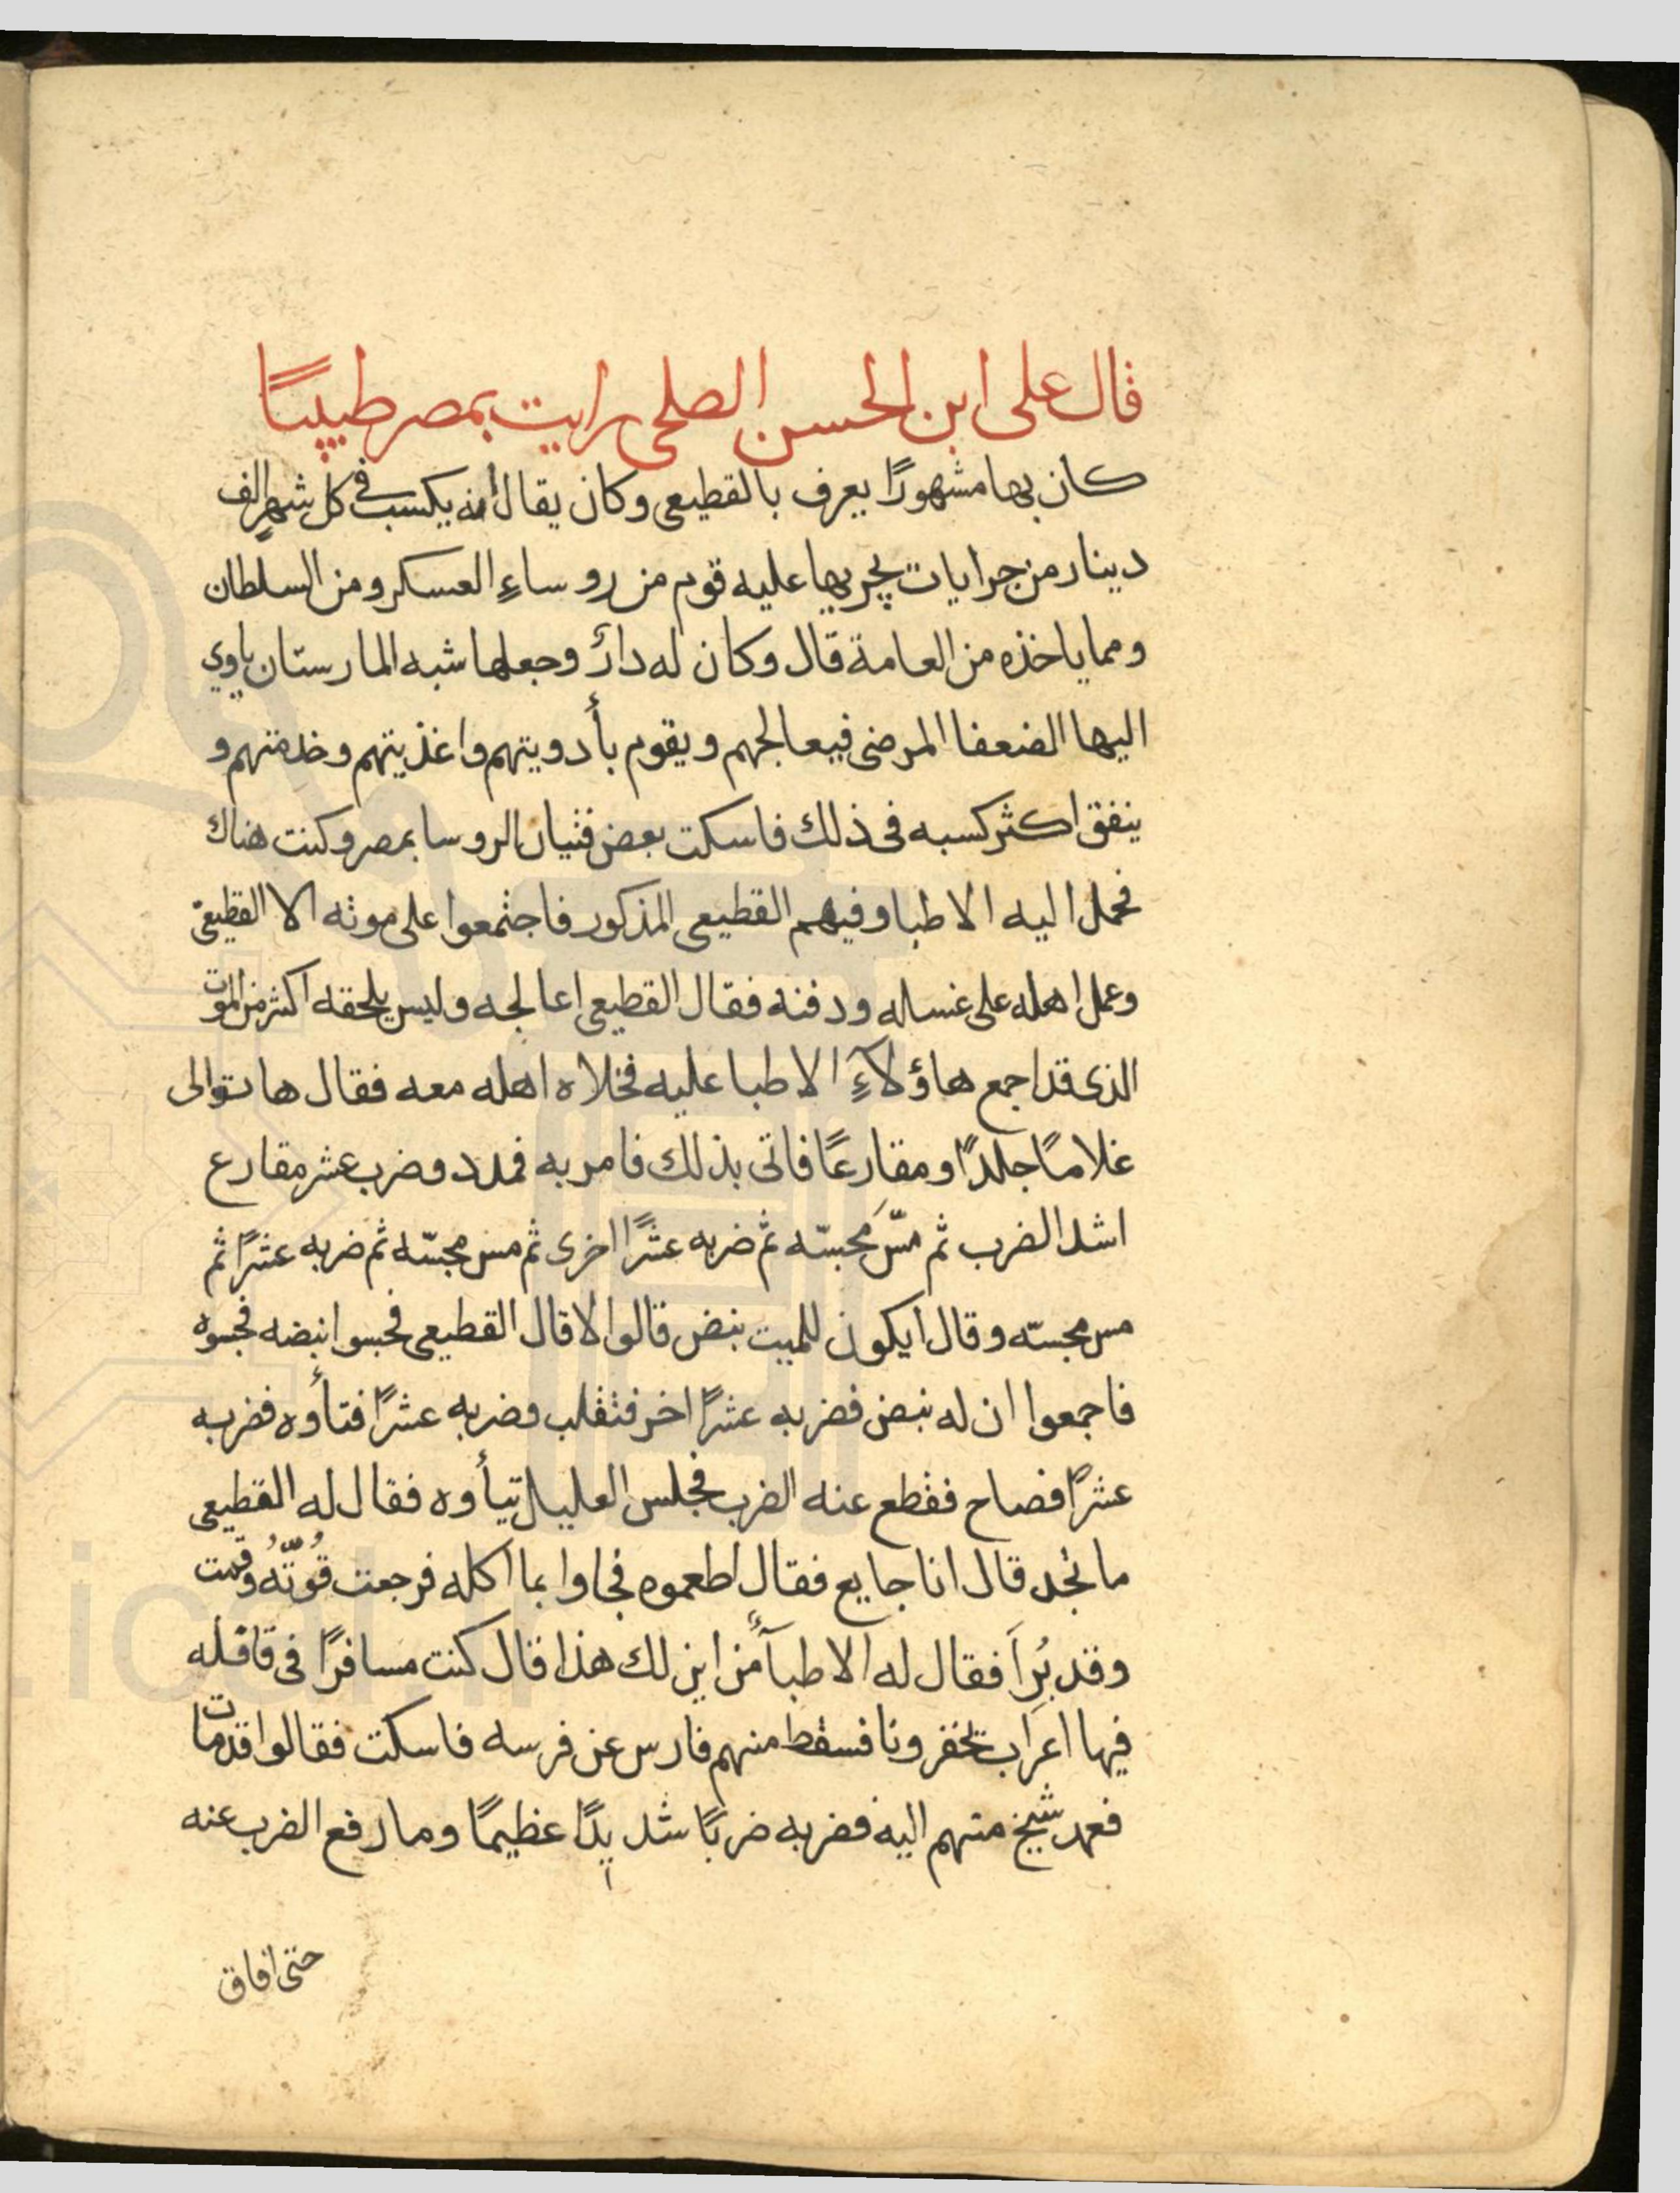 قال على ابن الحسن الصلحى رايت بمصر طبيبًا
كان بها مشهورًا يعرف بالقطيعى وكان يقال أنه يكسب فى كل شهرٍ الف
دينار من جرايات يجريها عليه قوم من روساءِ العسكر ومن السلطان
ومما ياخذه من العامة قال وكان له دارٌ وجعلها شبه المارستان ياوي
اليها الضعفا المرضى فيعالجهم ويقوم بأدويتهم واغذيتهم وخدمتهم و
ينفق اكثر كسبه فى ذلك فاسكت بعض فتيان الروسا بمصر وكنت هناك
فحمل اليه الاطبا وفيهم القطيعى المذكور فاجتمعوا على موته الا القطيعى
وعمل اهله على غسله ودفنه فقال القطيعى اعالجه وليس يلحقه اكثر من الموت
الذى قد اجمع هاؤلآءِ الاطبا عليه فخلاه اهله معه فقال هاتوا لى
غلامًا جلدًا ومقارعًا فاتى بذلك فامر به فمدد وضرب عشر مقارع
اشد الضرب ثم مسّ مَجسّه ثم ضربه عشرًا اخرى ثم مس مجسّه ثم ضربه عشرًا ثم
مس مجسّه وقال ايكون للميت نبض قالوا لا قال القطيعى فجسوا نبضه فجسوه
فاجمعوا ان له نبض فضربه عشرًا اخر فتقلب وضربه عشرًا فتأوه فضربه
عشرًا فصاح فقطع عنه الضرب فجلس العليل يتأوه فقال له القطيعى
ما تجد قال انا جايع فقال اطعموه فجاوا بما اكله فرجعت قُوّتُه وقمت
وقد بُرِاَ فقال له الاطبآءُ من اين لك هذا قال كنت مسافرًا فى قافله
فيها اعراب تخفرونا فسقط منهم فارس عن فرسه فاسكت فقالوا قد مات
فعمد شيخ منهم اليه فضربه ضربًا شديدًا عظيمًا وما رفع الضرب عنه
حتى افاق